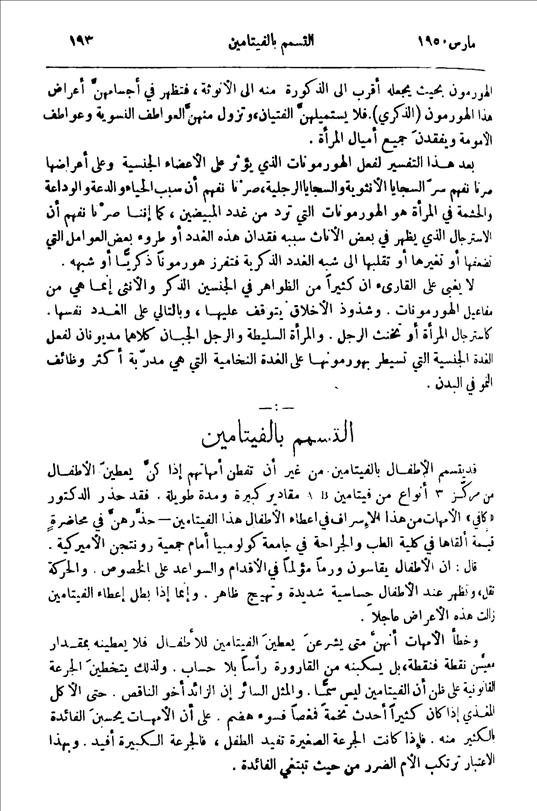 مارس ١٩٥٠
التسمم بالفيتامين
١٩٣
الهورمون بحيث يجعله أقرب الى الذكورة منه الى الأنوثة ، فتظهر في أجسامهنَّ أعراض
هذا الهورمون (الذكري). فلا يستميلهنَّ الفتيان، وتزول منهنَّ العواطف النسوية وعواطف
الأمومة ويفقدنَ جميع أميال المرأة .
بعد هذا التفسير لفعل الهورمونات الذي يؤثر على الأعضاء الجنسية وعلى أعراضها
صرنا نفهم سرّ السجايا الأنثوية والسجايا الرجلية، صرنا نفهم أن سبب الحياء والدعة والوداعة
والحشمة في المرأة هو الهورمونات التي ترد من غدد المبيضين ، كما إننا صرنا نفهم أن
الاسترجال الذي يظهر في بعض الاناث سببه فقدان هذه الغدد أو طروء بعض العوامل التي
تضعفها أو تغيرها أو تقلبها الى شبه الغدد الذكرية فتفرز هورموناً ذكريًّا أو شبهه .
لا يخفى على القارىء ان كثيراً من الظواهر في الجنسين الذكر والأنثى إنما هي من
مفاعيل الهورمونات . وشذوذ الأخلاق يتوقف عليها ، وبالتالي على الغدد نفسها .
كاسترجال المرأة أو تخنث الرجل . والمرأة السليطة والرجل الجبان كلاهما مديونان لفعل
الغدة الجنسية التي تسيطر بهورمونها على الغدة النخامية التي هي مدرّبة أكثر وظائف
النمو في البدن .
التسمم بالفيتامين
قد يتسمم الأطفال بالفيتامين من غير أن تفطن أمهاتهم إذا كنَّ يعطينَ الأطفال
من مركّز ٣ أنواع من فيتامين مقادير كبيرة ومدة طويلة . فقد حذر الدكتور
«كافي» الأمهات من هذا الإسراف في اعطاء الأطفال هذا الفيتامين — حذَّرهنَّ في محاضرةٍ
قيمة ألقاها في كلية الطب والجراحة في جامعة كولومبيا أمام جمعية رونتجن الأميركية .
قال : ان الأطفال يقاسون ورماً مؤلماً في الأقدام والسواعد على الخصوص . والحركة
تقل، وتظهر عند الأطفال حساسية شديدة وتهيج ظاهر . وإنما إذا بطل إعطاء الفيتامين
زالت هذه الأعراض عاجلاً .
وخطأ الأمهات أنهنَّ متى يشرعنَ يعطينَ الفيتامين للأطفال فلا يعطينه بمقدار
معيَّن نقطة فنقطة، بل يسكبنه من القارورة رأساً بلا حساب . ولذلك يتخطينَ الجرعة
القانونية على ظن أن الفيتامين ليس سمًّا . والمثل السائر إن الزائد أخو الناقص . حتى الأكل
المغذي إذا كان كثيراً أحدث تخمة فمغصاً فسوء هضم . على أن الأمهات يحسبنَ الفائدة
بالكثير منه . فإذا كانت الجرعة الصغيرة تفيد الطفل ، فالجرعة الكبيرة أفيد . وبهذا
الاعتبار ترتكب الأم الضرر من حيث تبتغي الفائدة .